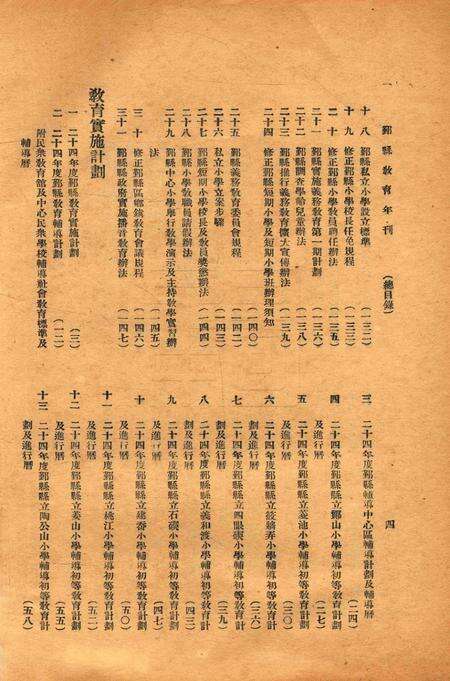 鄞縣教育年刊 (總目錄) 四
十八 鄞縣私立小學設立標準 (一三二)
十九 修正鄞縣小學校長任免規程 (一三三)
二十 修正鄞縣小學教員聘任辦法 (一三五)
二十一 鄞縣實施義務教育第一期計劃 (一三六)
二十二 鄞縣調查學齡兒童辦法 (一三八)
二十三 鄞縣推行義務教育擴大宣傳辦法 (一三九)
二十四 修正鄞縣短期小學及短期小學班辦理須知
(一四〇)
二十五 鄞縣義務教育委員會規程 (一四二)
二十六 私立小學立案步驟 (一四三)
二十七 鄞縣短期小學校長及教員獎懲辦法 (一四四)
二十八 鄞縣小學教職員請假辦法
二十九 鄞縣中心小學舉行教學演示及主持教學實習辦
法 (一四五)
三十 修正鄞縣區鄉鎮教育會議規程 (一四六)
三十一 鄞縣縣政府實施播音教育辦法 (一四七)
教育實施計劃
一 二十四年度鄞縣教育實施計劃 (三)
二 二十四年度鄞縣教育輔導計劃 (一二)
附民衆教育館及中心民衆學校輔導社會教育標準及
輔導曆
三 二十四年度鄞縣輔導中心區輔導計劃及輔導曆
(二四)
四 二十四年度鄞縣縣立鄮山小學輔導初等教育計劃
及進行曆 (二七)
五 二十四年度鄞縣縣立菱池小學輔導初等教育計劃
及進行曆 (三〇)
六 二十四年度鄞縣縣立弄小學輔導初等教育計
劃及進行曆 (三六)
七 二十四年度鄞縣縣立四眼碶小學輔導初等教育計
劃及進行曆 (三九)
八 二十四年度鄞縣縣立義和渡小學輔導初等教育計
劃及進行曆 (四三)
九 二十四年度鄞縣縣立石碶小學輔導初等教育計劃
及進行曆 (四七)
十 二十四年度鄞縣縣立小學輔導初等教育計劃
及進行曆 (五〇)
十一 二十四年度鄞縣縣立桃江小學輔導初等教育計劃
及進行曆 (五二)
十二 二十四年度鄞縣縣立姜山小學輔導初等教育計劃
及進行曆 (五五)
十三 二十四年度鄞縣縣立陶公山小學輔導初等教育計
劃及進行曆 (五八)